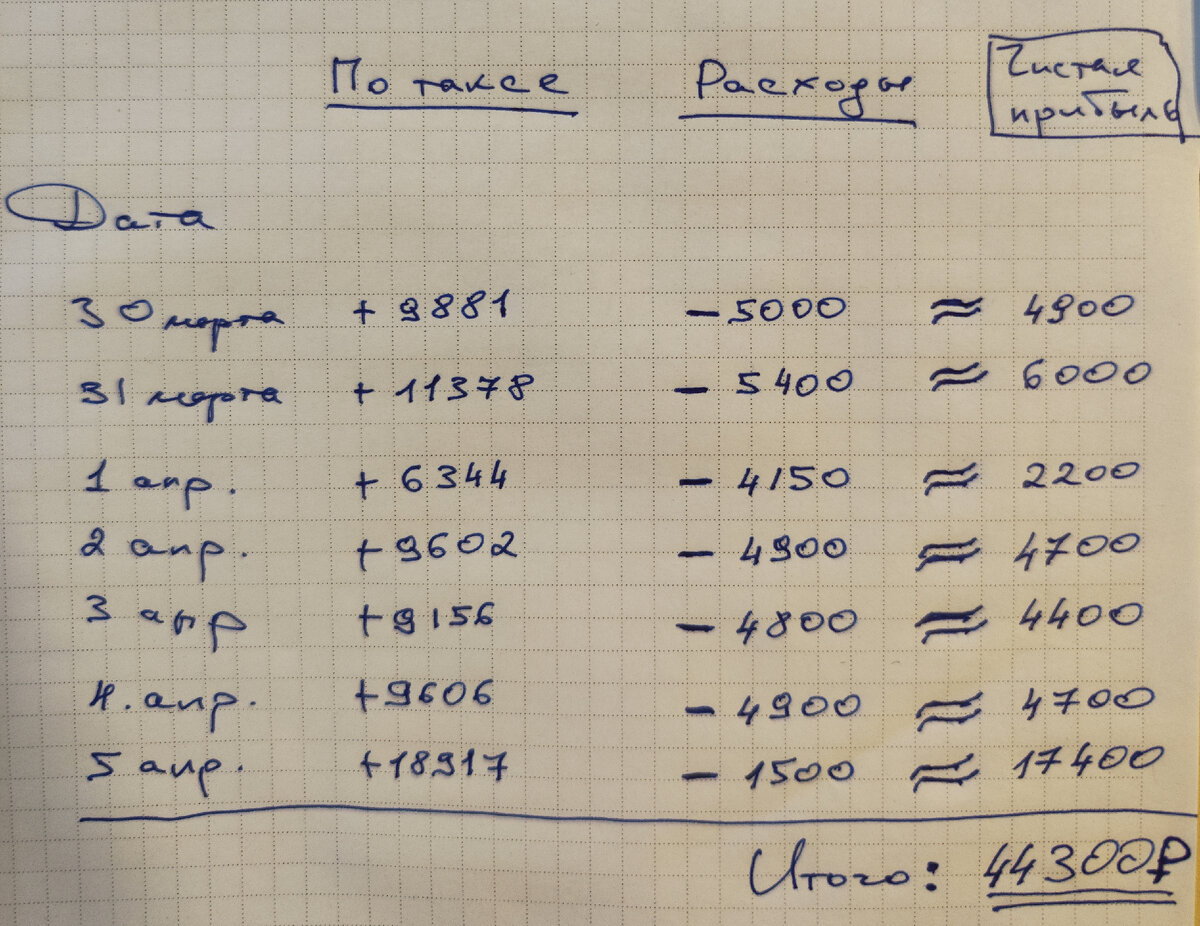 По таксе Расходы Чистая
прибыль
Дата
30 марта + 9881 - 5000 ≈ 4900
31 марта + 11378 - 5400 ≈ 6000
1 апр. + 6344 - 4150 ≈ 2200
2 апр. + 9602 - 4900 ≈ 4700
3 апр + 9156 - 4800 ≈ 4400
4. апр. + 9606 - 4900 ≈ 4700
5 апр. + 18917 - 1500 ≈ 17400
Итого: 44300₽